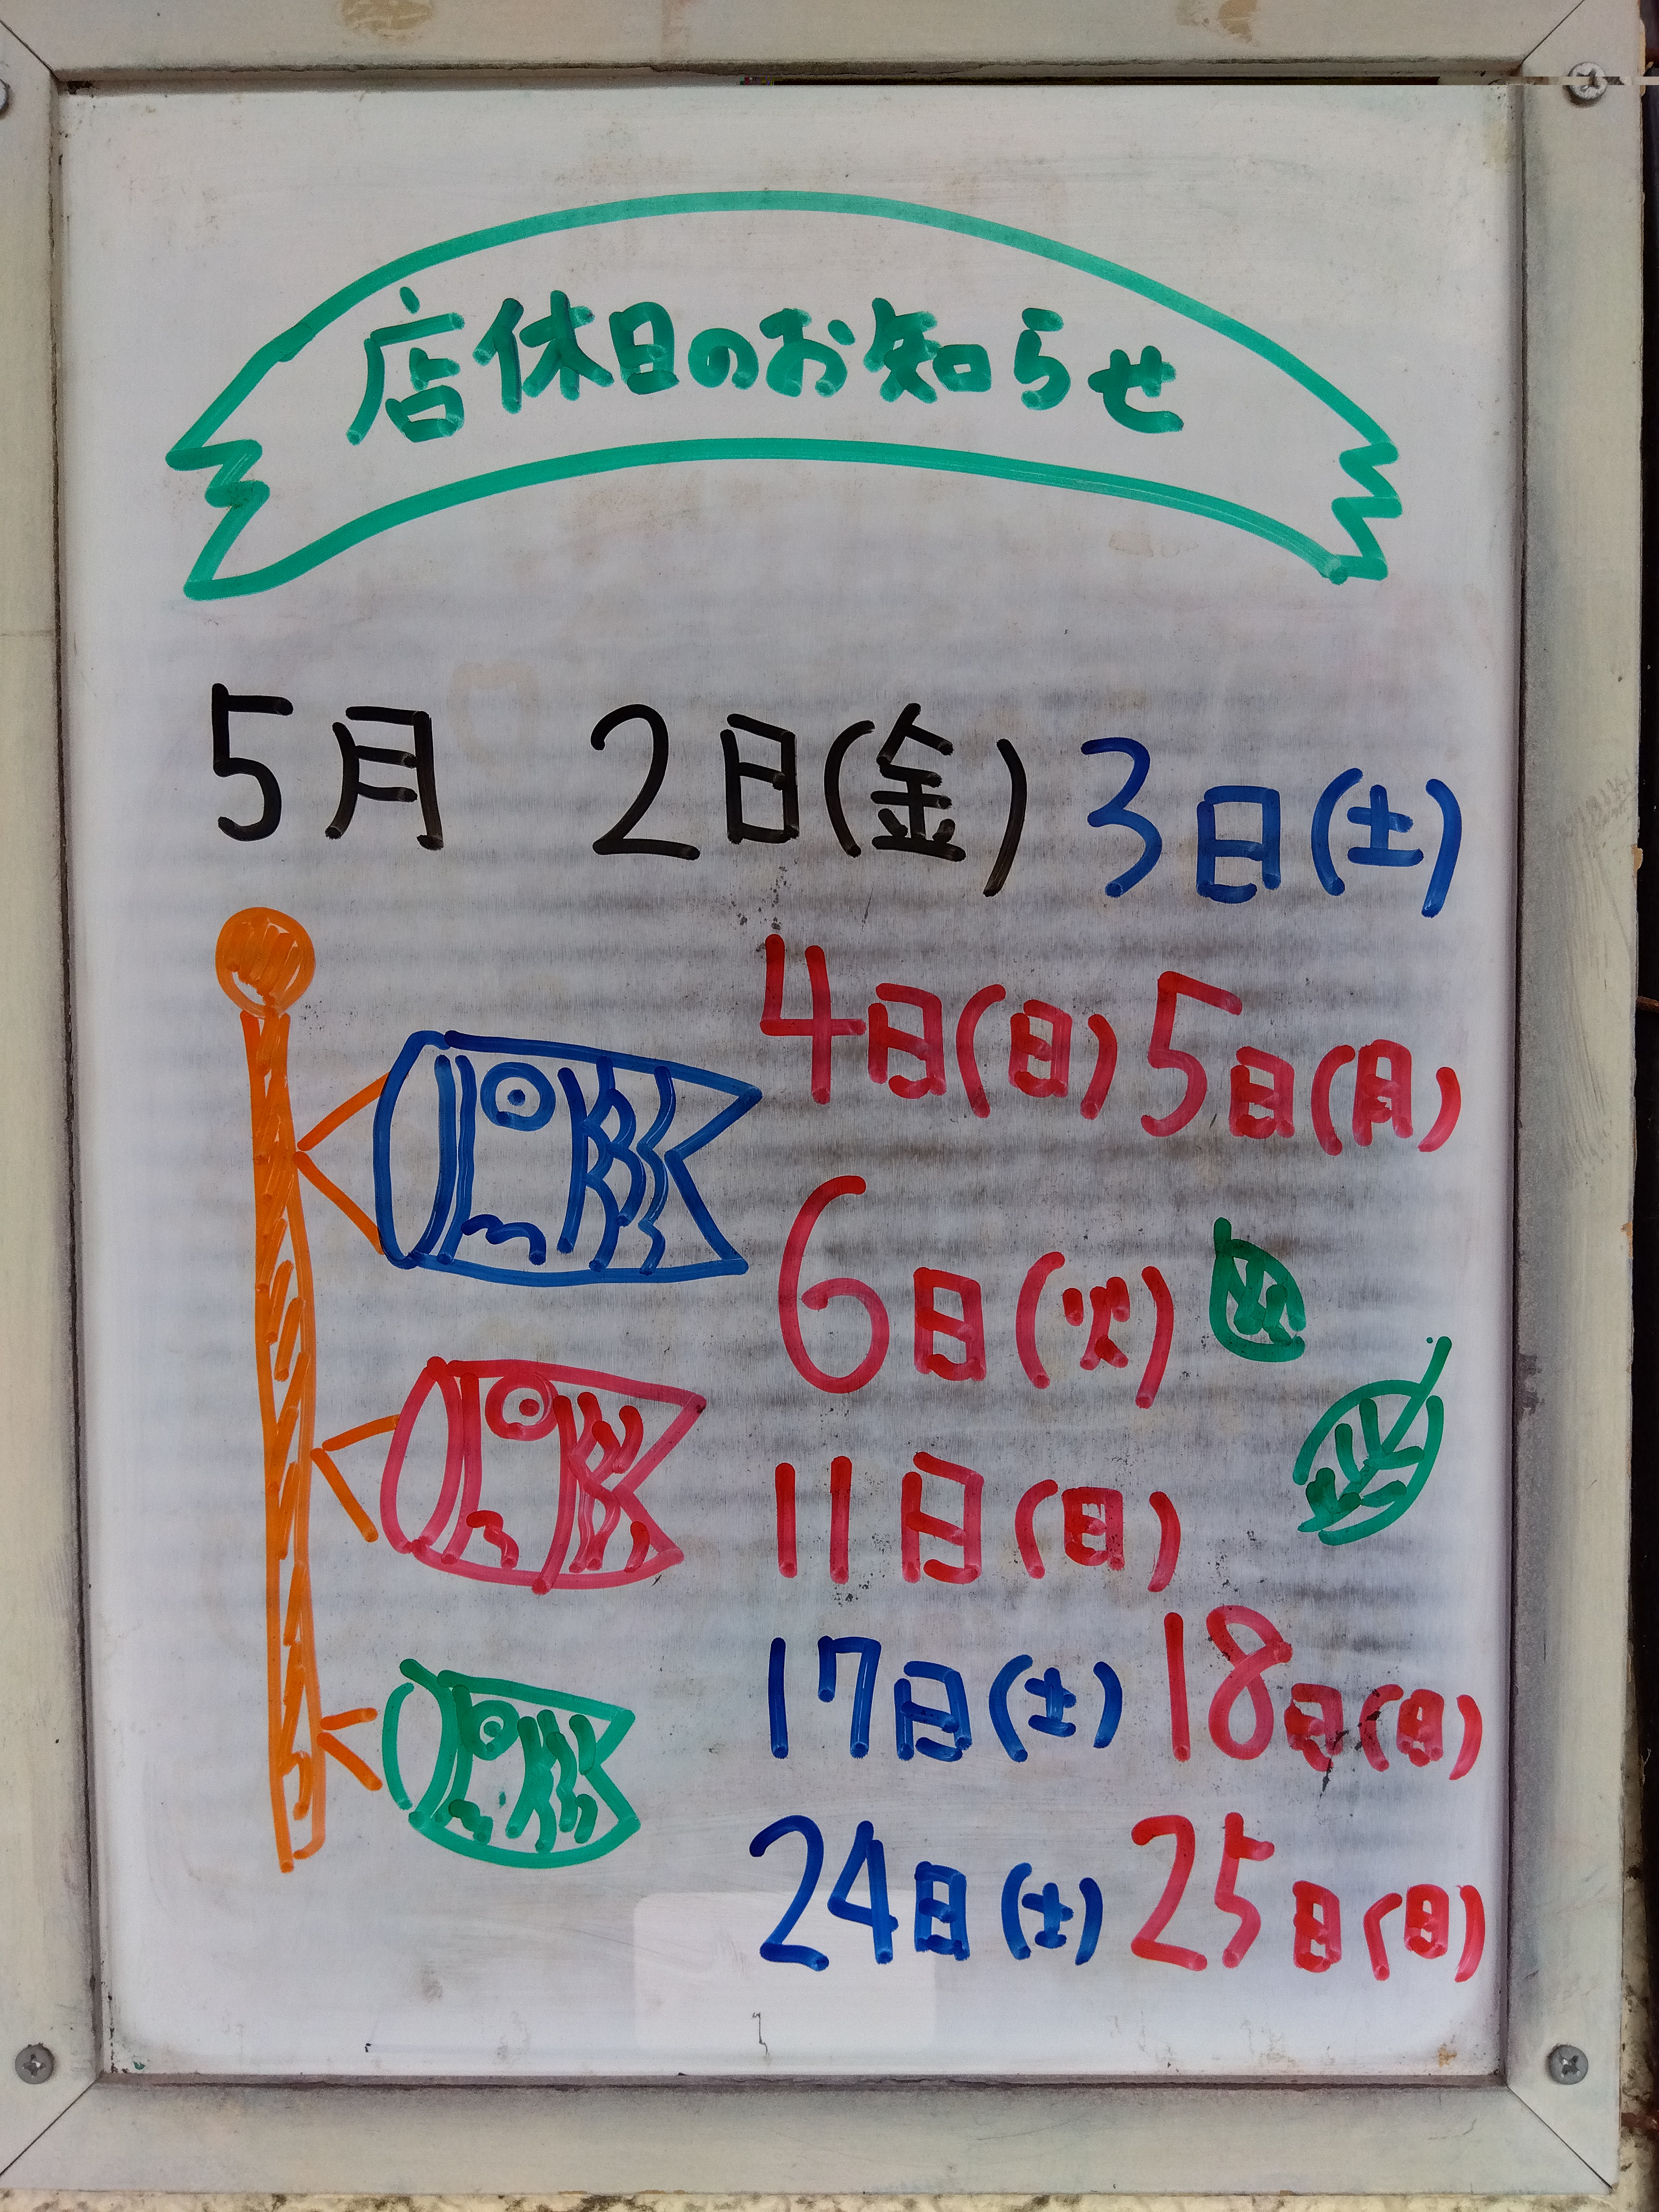 店休日のお知らせ
5月 2日(金) 3日(土)
4日(日) 5日(月)
6日(火)
11日(日)
17日(土) 18日(日)
24日(土) 25日(日)